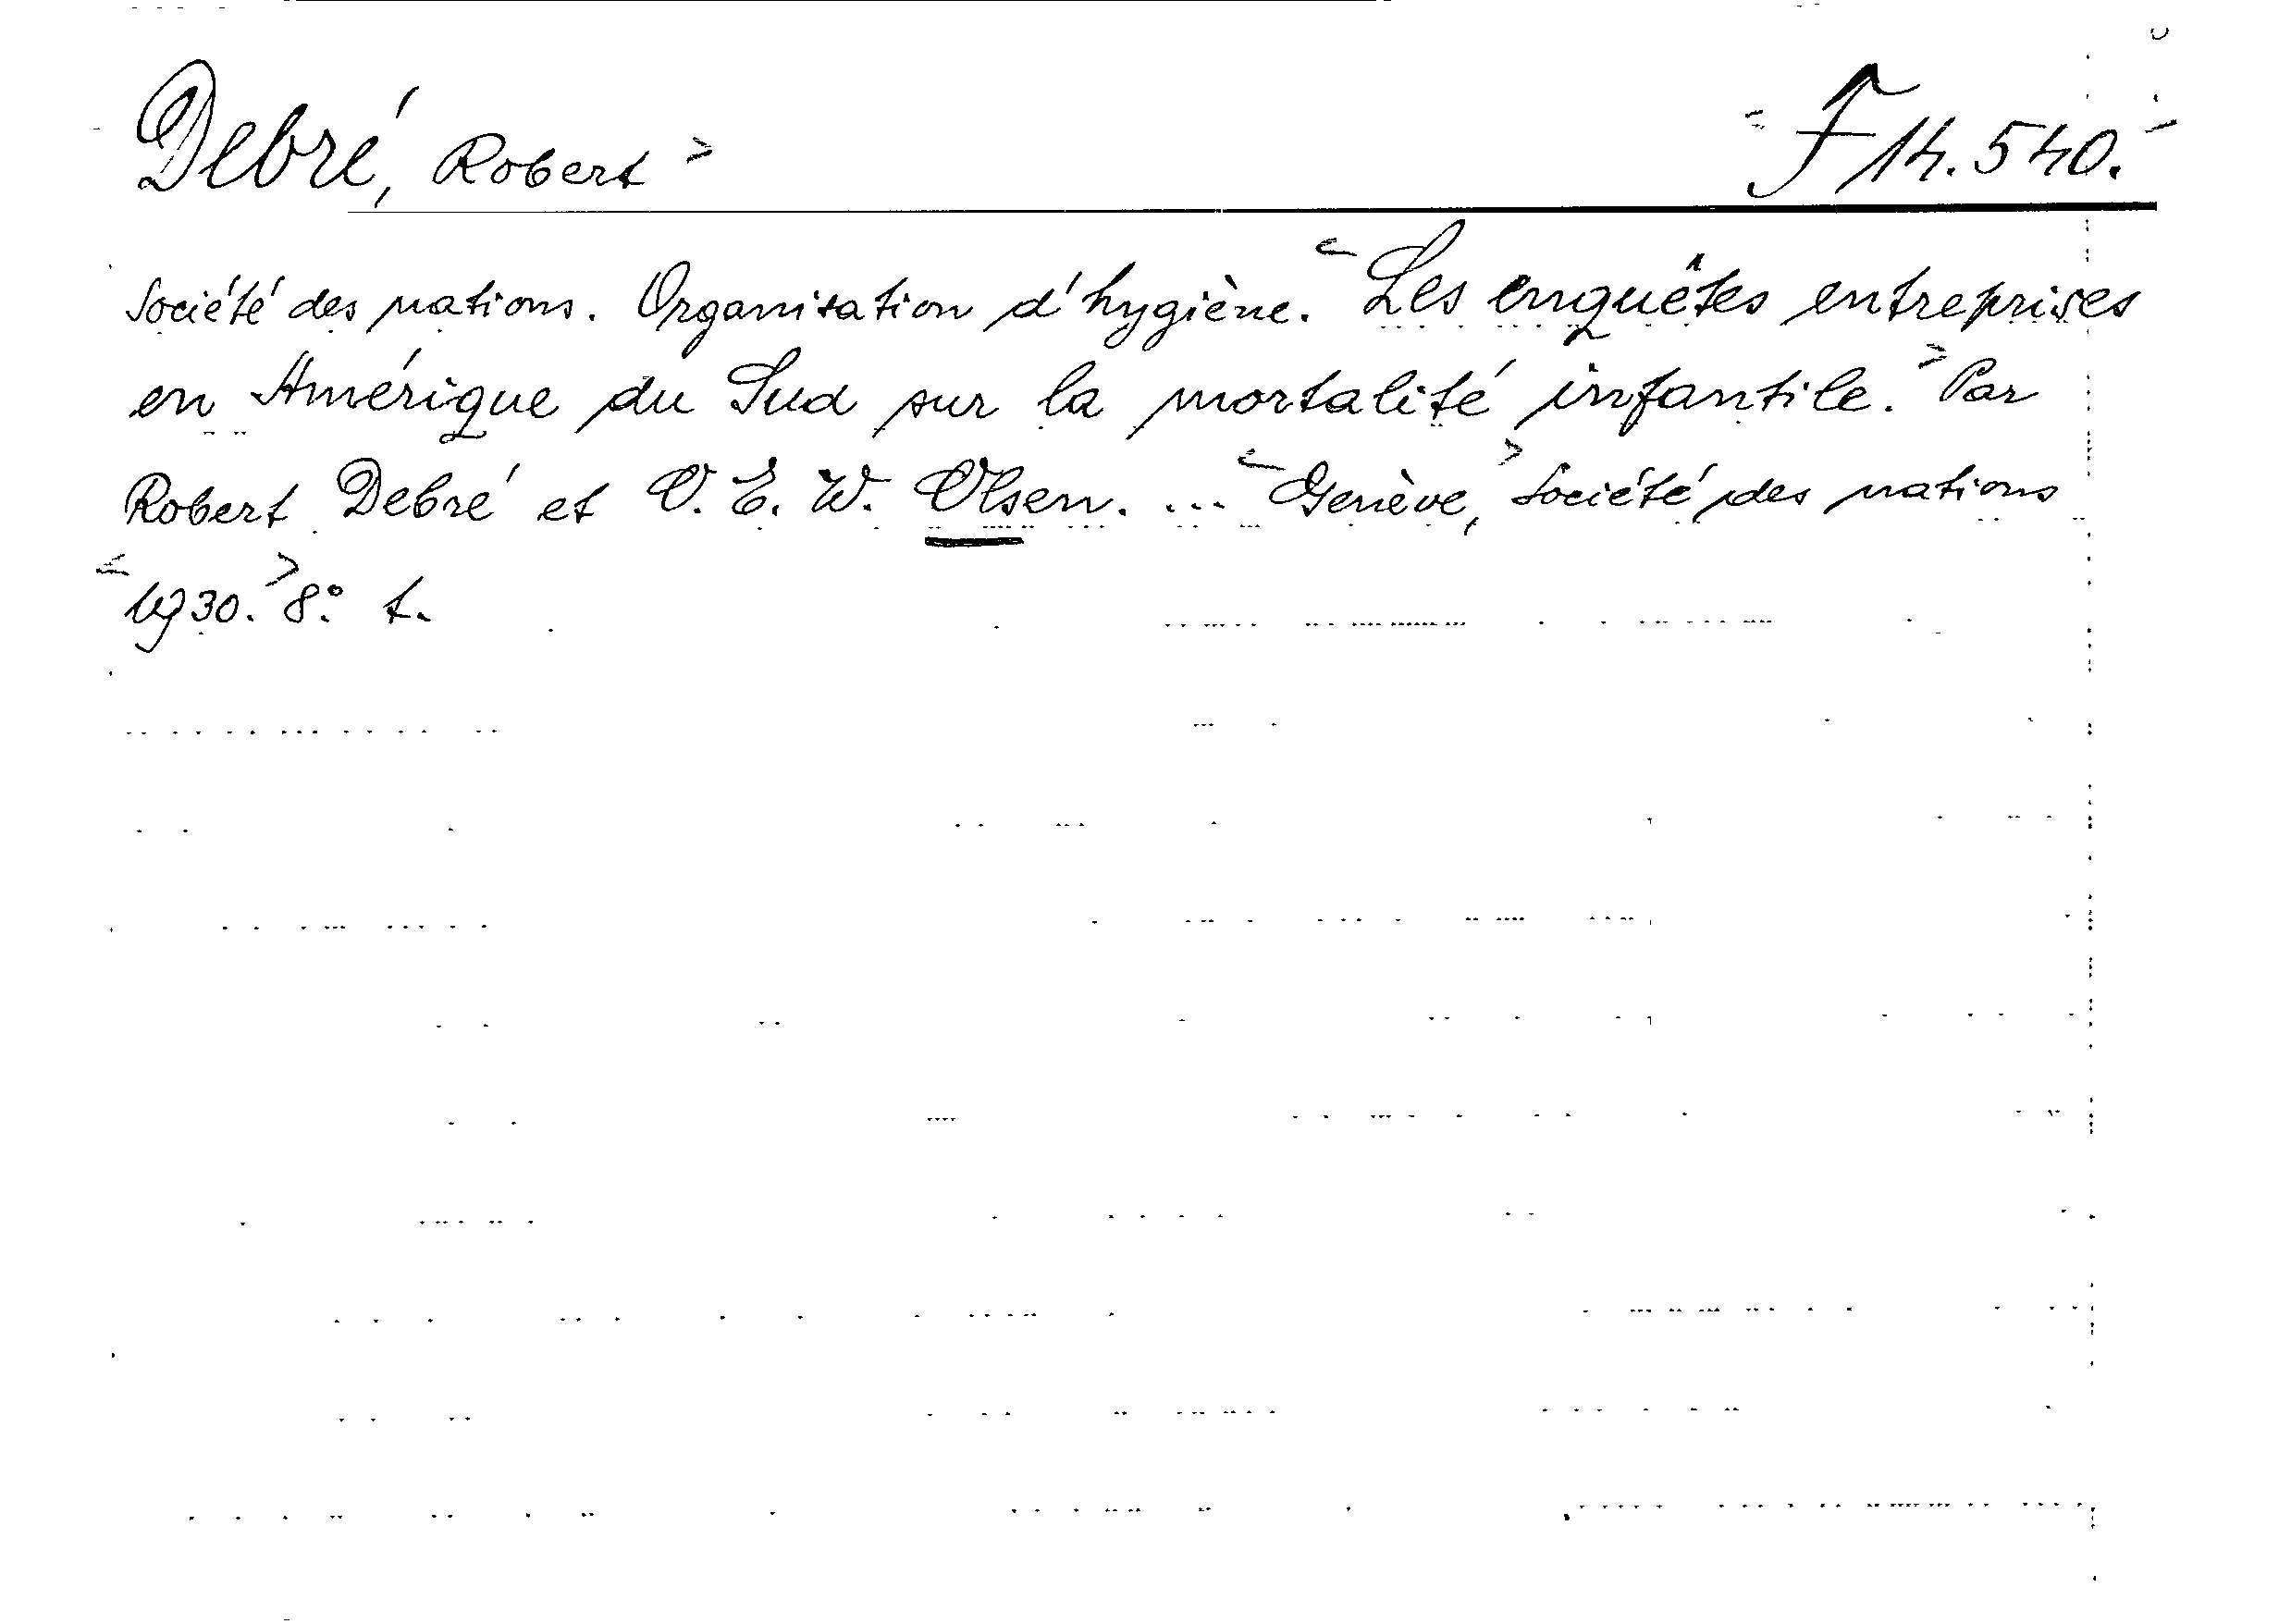 Debré, Robert > < F 14.540. -
Société des nations. Organisation d'hygiène. < Les enquêtes entreprises
en Amérique du Sud sur la mortalité infantile. > Par
Robert Debré et O. E. W. Olsen. ... < Genève, > Société des nations
< 1930. > 8:o t.